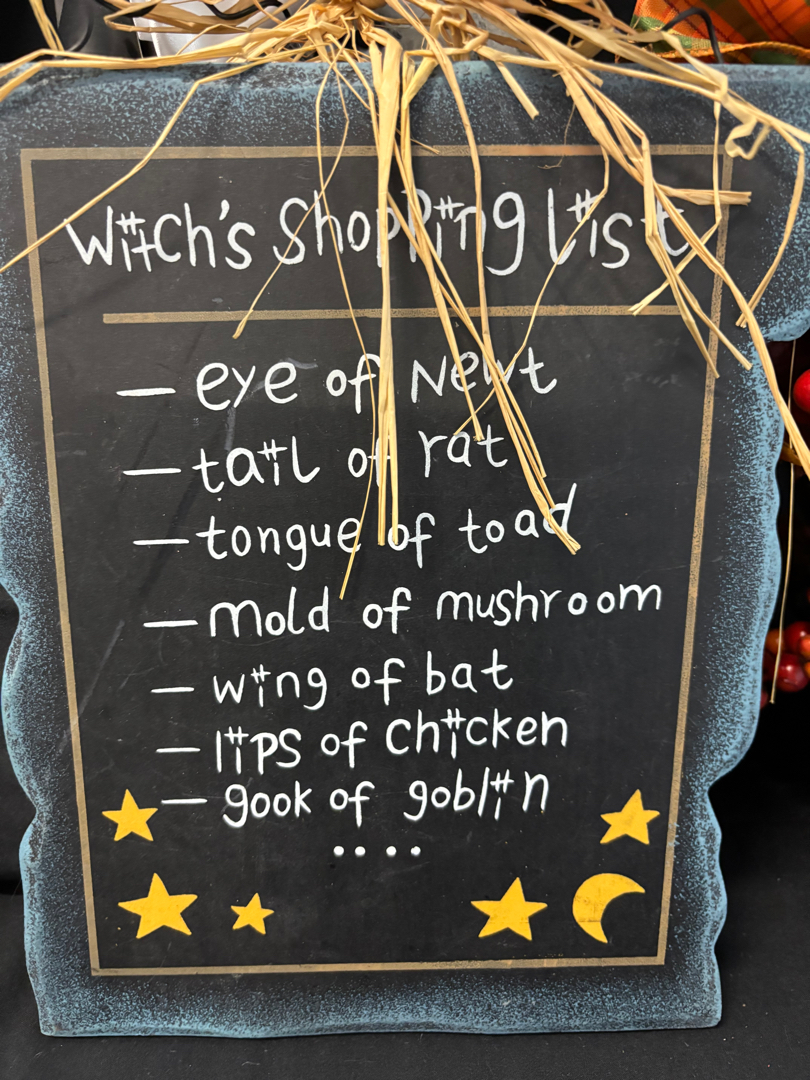 Witch's Shopping list
— eye of Newt
— tail of rat
— tongue of toad
— mold of mushroom
— wing of bat
— lips of chicken
— gook of goblin
....